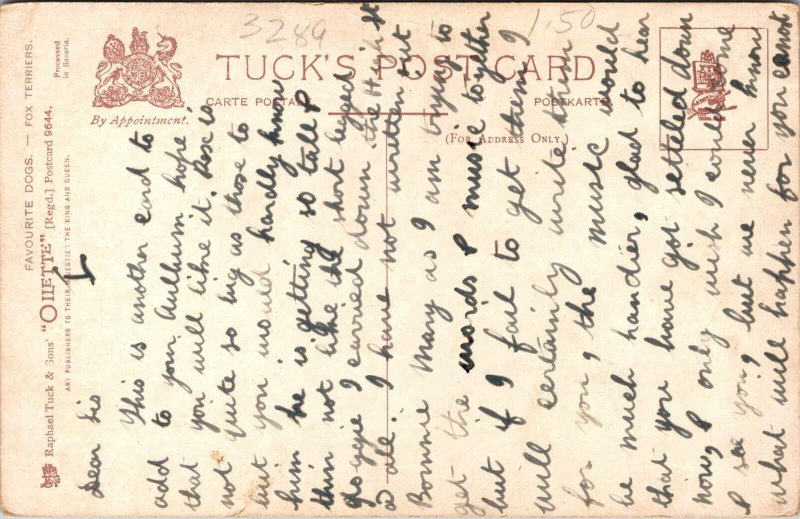 3289
1.50
TUCK'S POST CARD
CARTE POSTALE
POSTKARTE
(FOR ADDRESS ONLY.)
By Appointment.
FAVOURITE DOGS. — FOX TERRIERS.
Raphael Tuck & Sons' "OILETTE" [Regd.] Postcard 9644.
ART PUBLISHERS TO THEIR MAJESTIES THE KING AND QUEEN.
Processed in Bavaria.
Dear Sis
This is another card to
add to your Aulbum hope
that you will like it. Rex is
not quite so big as those to
but you would hardly know
him he is getting so tall &
thin not like the short legged
doggie I carried down the High St
& all. I have not written out
Bonnie Mary as I am trying to
get the words & music together
but if I fail to get them I
will certainly write them
for you, the music would
be much handier, glad to hear
that you have got settled down
now, & only wish I could come
& see you, but we never know
what will happen for you cannot